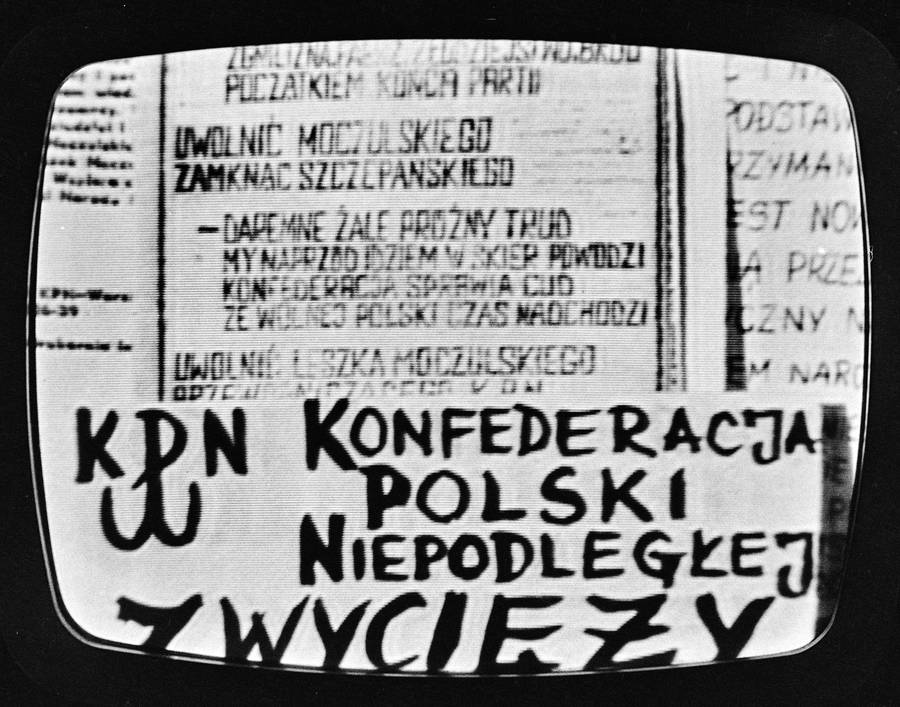 POCZĄTKIEM KOŃCA PARTII
UWOLNIĆ MOCZULSKIEGO
ZAMKNĄĆ SZCZEPAŃSKIEGO
— DAREMNE ŻALE PRÓŻNY TRUD
MY NAPRZÓD IDZIEM W SKIER POWODZI
KONFEDERACJA SPRAWIA CUD
ŻE WOLNEJ POLSKI CZAS NADCHODZI
UWOLNIĆ LESZKA MOCZULSKIEGO
PODSTAW
RZYMAN
EST NOW
PRZE
CZNY N
M NARO
KPN KONFEDERACJA
POLSKI
NIEPODLEGŁEJ
ZWYCIĘŻY